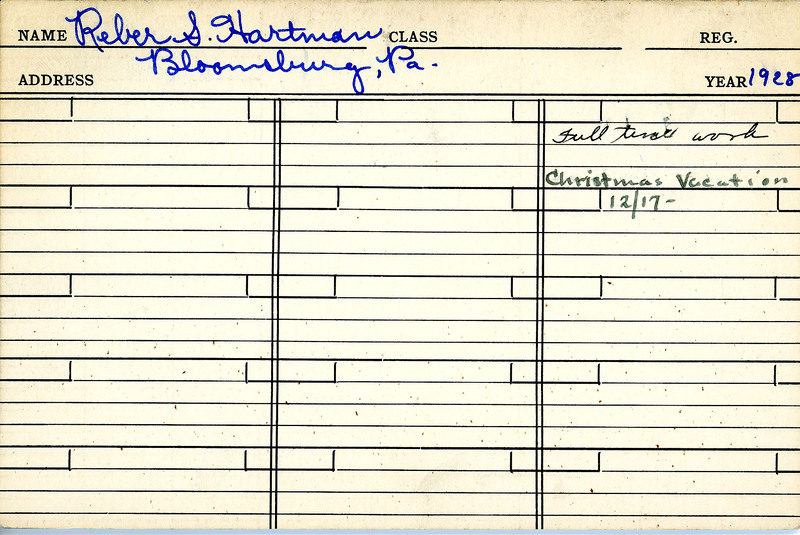 NAME Reber S. Hartman CLASS REG.
ADDRESS Bloomsburg, Pa. YEAR 1928
Full time work
Christmas Vacation
12/17-